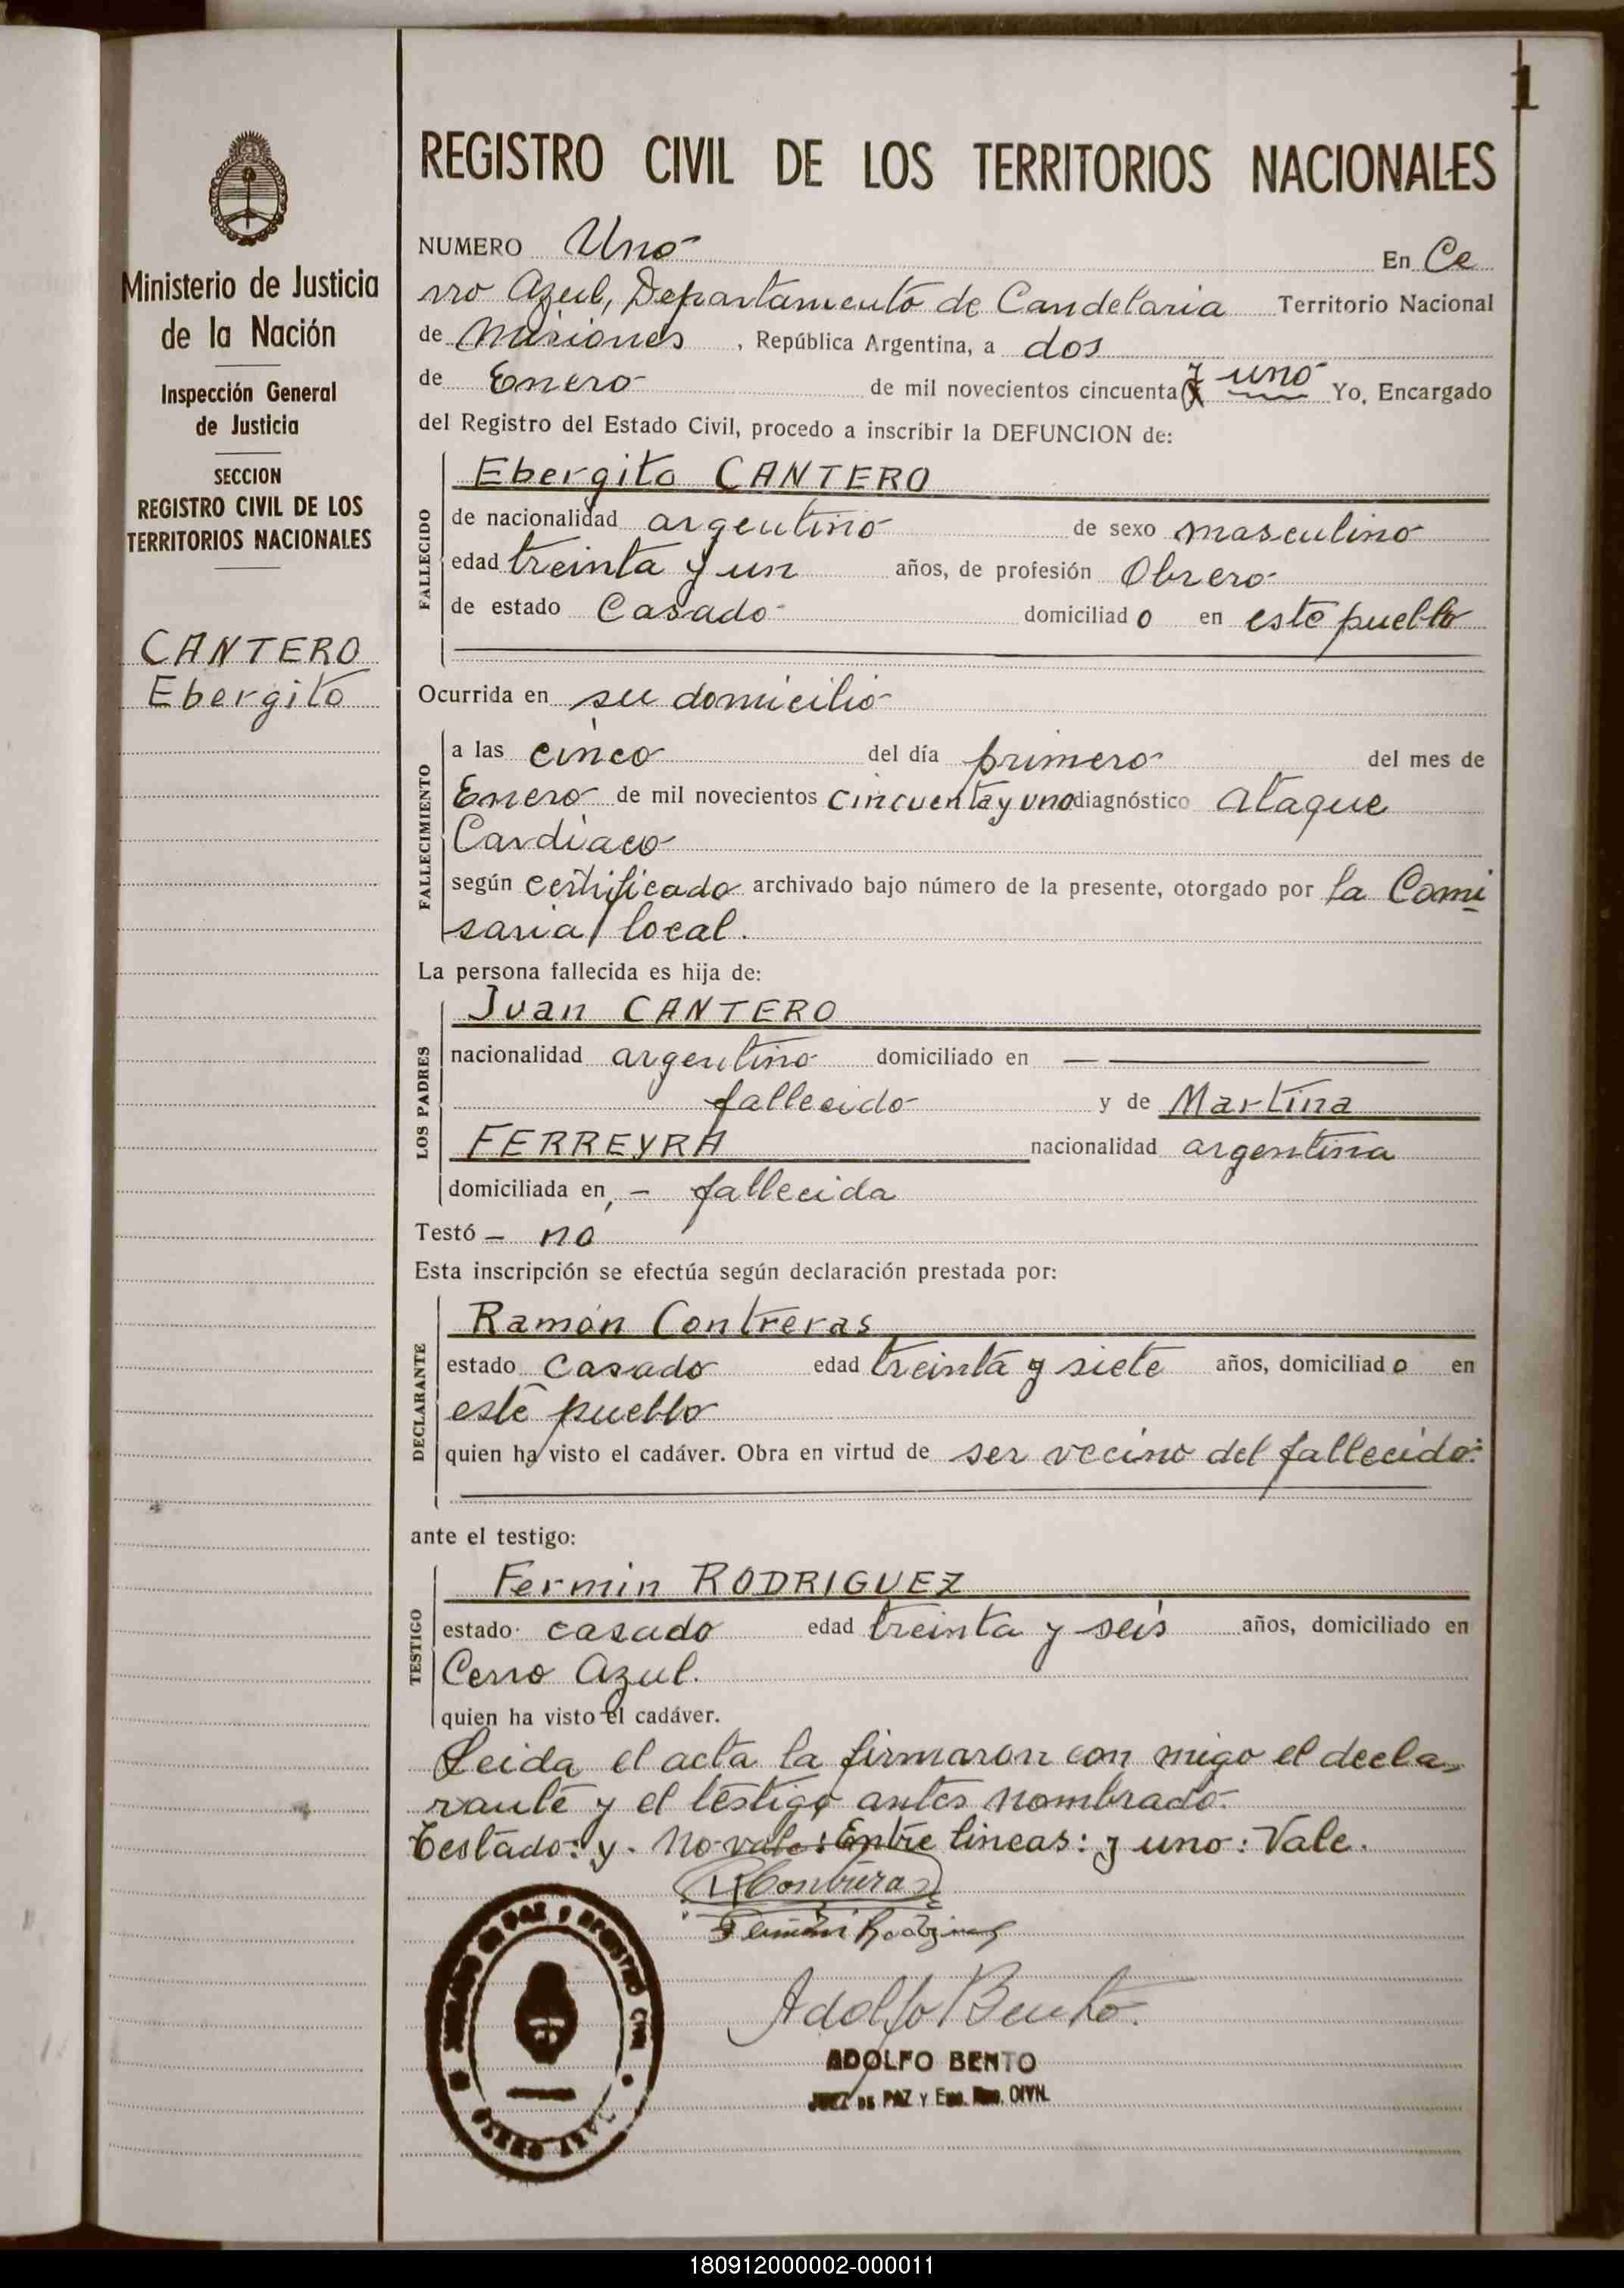 1
REGISTRO CIVIL DE LOS TERRITORIOS NACIONALES
Ministerio de Justicia
de la Nación
Inspección General
de Justicia
SECCION
REGISTRO CIVIL DE LOS
TERRITORIOS NACIONALES
CANTERO
Ebergito
NUMERO Uno En Ce
rro Azul, Departamento de Candelaria Territorio Nacional
de Misiones, República Argentina, a dos
de Enero de mil novecientos cincuenta y uno Yo, Encargado
del Registro del Estado Civil, procedo a inscribir la DEFUNCION de:
FALLECIDO
Ebergito CANTERO
de nacionalidad argentino de sexo masculino
edad treinta y un años, de profesión Obrero
de estado Casado domiciliado en este pueblo
Ocurrida en su domicilio
FALLECIMIENTO
a las cinco del día primero del mes de
Enero de mil novecientos cincuenta y uno diagnóstico ataque
Cardiaco
según certificado archivado bajo número de la presente, otorgado por la Comi
saria local.
La persona fallecida es hija de:
LOS PADRES
Juan CANTERO
nacionalidad argentino domiciliado en —
fallecido y de Martina
FERREYRA nacionalidad argentina
domiciliada en, - fallecida
Testó - no
Esta inscripción se efectúa según declaración prestada por:
DECLARANTE
Ramón Contreras
estado casado edad treinta y siete años, domiciliado en
este pueblo
quien ha visto el cadáver. Obra en virtud de ser vecino del fallecido:
ante el testigo:
TESTIGO
Fermin RODRIGUEZ
estado casado edad treinta y seis años, domiciliado en
Cerro Azul.
quien ha visto el cadáver.
Leida el acta la firmaron con migo el decla
rante y el testigo antes nombrado.
Testado: y. No vale: Entre lineas: y uno: Vale.
R Contreras
Fermin Rodriguez
Adolfo Bento.
ADOLFO BENTO
JUEZ DE PAZ Y ENC. REG. CIVIL
JUZGADO DE PAZ Y REGISTRO CIVIL
CERRO AZUL
180912000002-000011